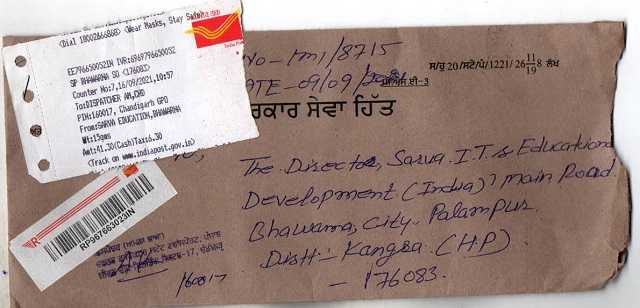 (Dial 18002666868) (Wear Masks, Stay Safe)
EE796650052IN IVR:6969796650052
SP BHAWARNA SO (176083)
Counter No:7,16/09/2021,10:57
To:DISPATCHER AM,CHD
PIN:160017, Chandigarh GPO
From:SARVA EDUCATION,BHAWARNA
Wt:15gms
Amt:41.30(Cash)Tax:6.30
(Track on www.indiapost.gov.in)
RP967663023IN
No-tm1/8715
DATE-09/09/
ਸ/ਰੂ 20/ਸਟੇ/ਪੰ/1221/26 11/19 8 ਲੱਖ
ਸੇਵਾ ਹਿੱਤ
The Director, Sarva. I.T. & Educational
Development (India), main Road
Bhawarna, City- Palampur
Distt:- Kangra (H.P)
- 176083.
160017